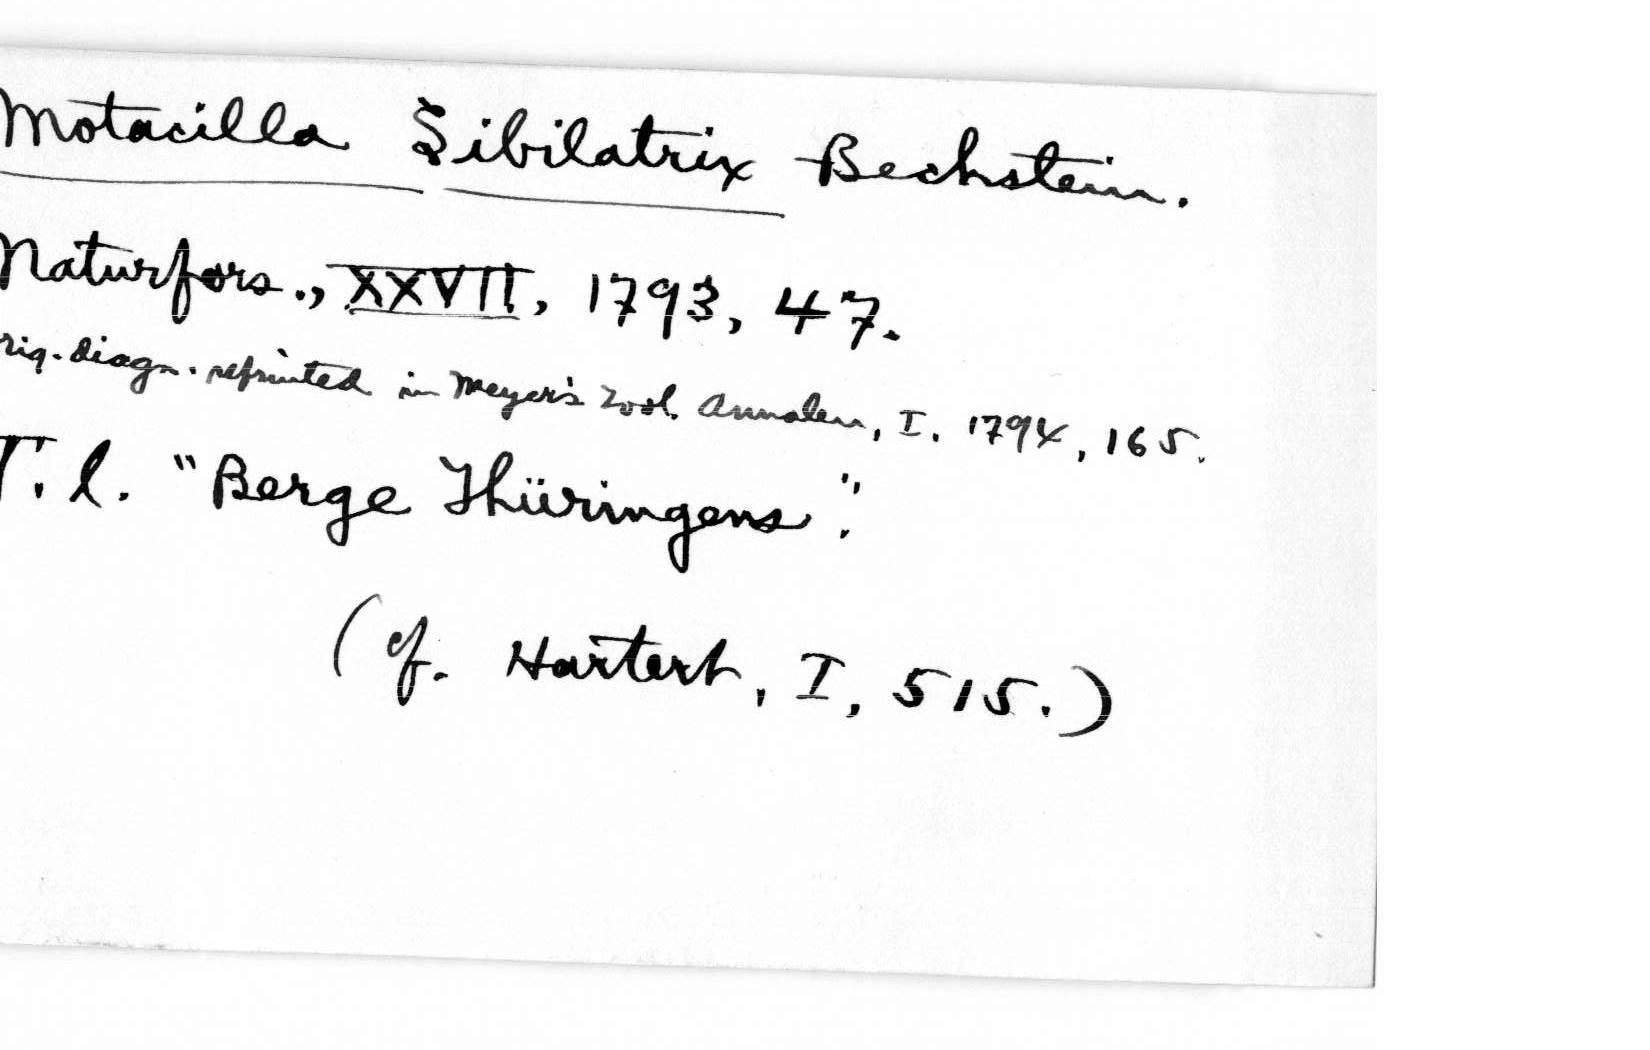 Motacilla Sibilatrix Bechstein.
Naturfors., XXVII, 1793, 47.
rig. diagn. reprinted in Meyer's Zool. Annalen, I. 1794, 165.
T. l. "Berge Thüringens".
(cf. Hartert, I, 515.)